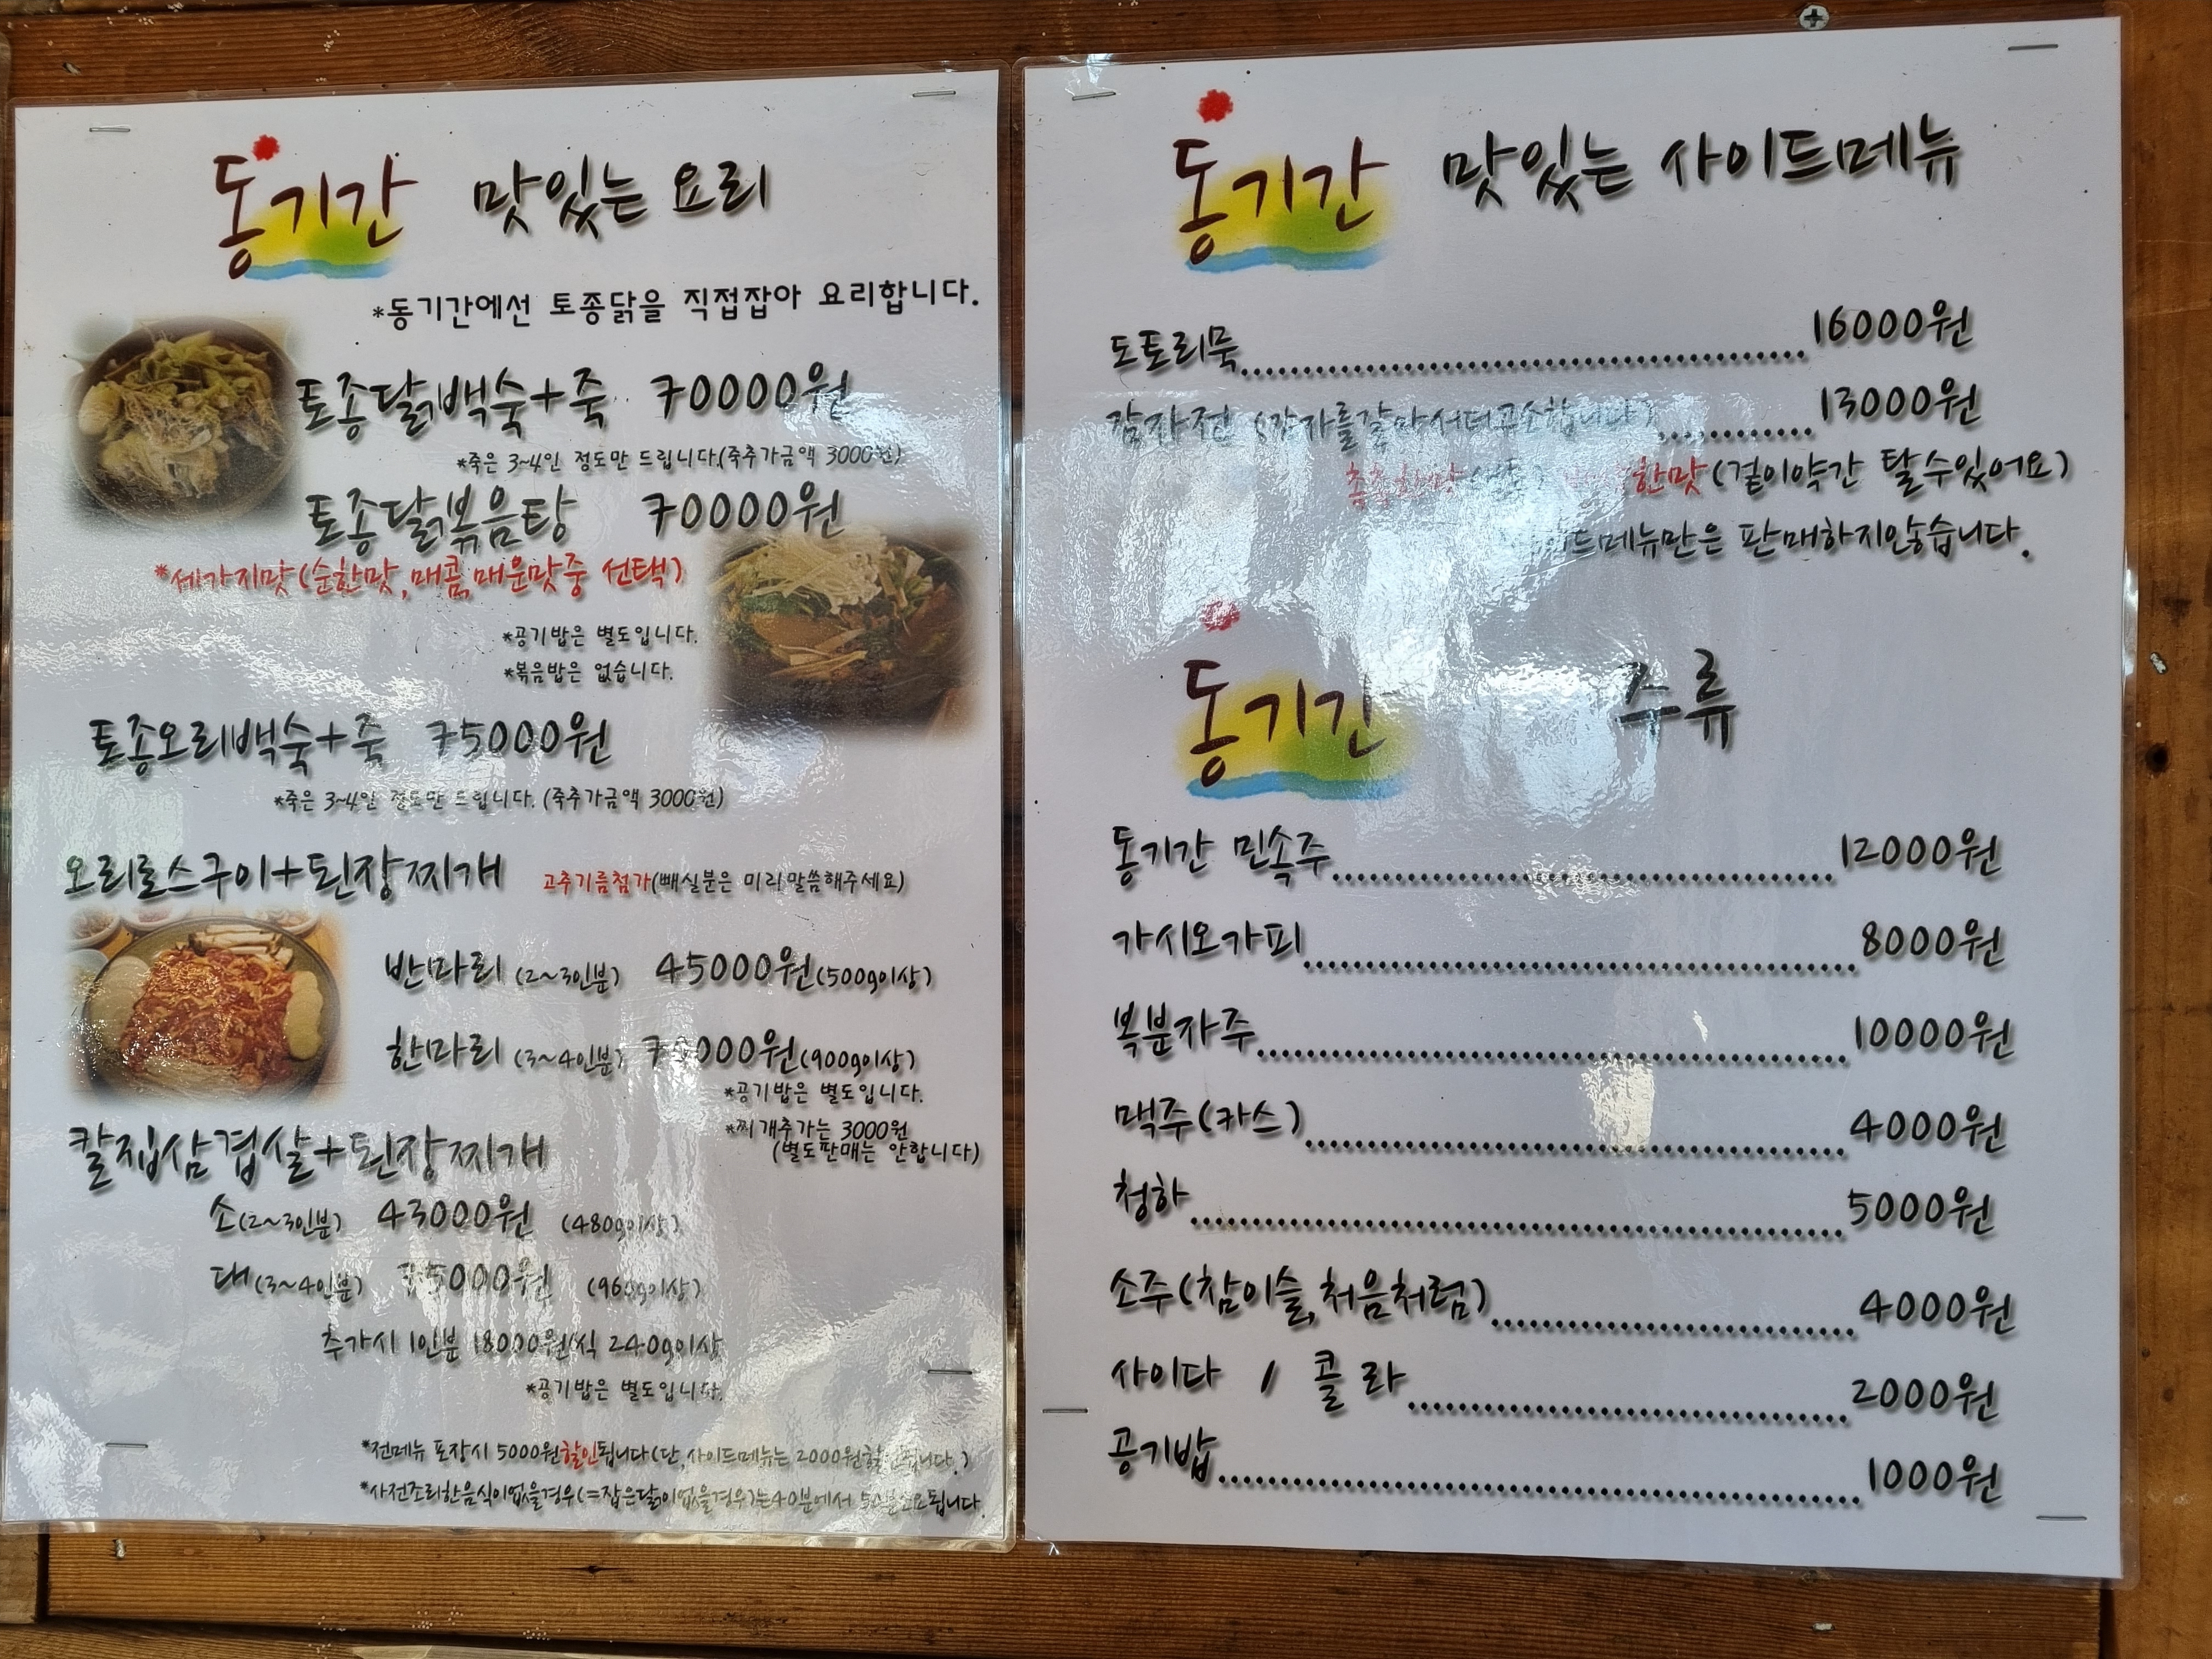 동기간 맛있는 요리
*동기간에선 토종닭을 직접잡아 요리합니다.
토종닭백숙+죽 70000원
*죽은 3~4인 정도만 드립니다.(죽추가금액 3000원)
토종닭볶음탕 70000원
*세가지맛(순한맛,매콤,매운맛중 선택)
*공기밥은 별도입니다.
*볶음밥은 없습니다.
토종오리백숙+죽 75000원
*죽은 3~4인 정도만 드립니다. (죽추가금액 3000원)
오리로스구이+된장찌개 고추기름첨가(빼실분은 미리말씀해주세요)
반마리 (2~3인분) 45000원(500g이상)
한마리 (3~4인분) 70000원(900g이상)
*공기밥은 별도입니다.
*찌개추가는 3000원
(별도판매는 안합니다)
칼집삼겹살+된장찌개
소(2~3인분) 43000원 (480g이상)
대(3~4인분) 75000원 (960g이상)
추가시 1인분 18000원씩 240g이상
*공기밥은 별도입니다.
*전메뉴 포장시 5000원할인됩니다(단,사이드메뉴는 2000원할인됩니다.)
*사전조리한음식이없을경우(=잡은닭이없을경우)는40분에서 50분소요됩니다.
동기간 맛있는 사이드메뉴
도토리묵 16000원
감자전 (감자를갈아서더고소합니다) 13000원
한맛(겉이약간 탈수있어요)
사이드메뉴만은 판매하지않습니다.
동기간 주류
동기간 민속주 12000원
가시오가피 8000원
복분자주 10000원
맥주(카스) 4000원
청하 5000원
소주(참이슬,처음처럼) 4000원
사이다 / 콜라 2000원
공기밥 1000원